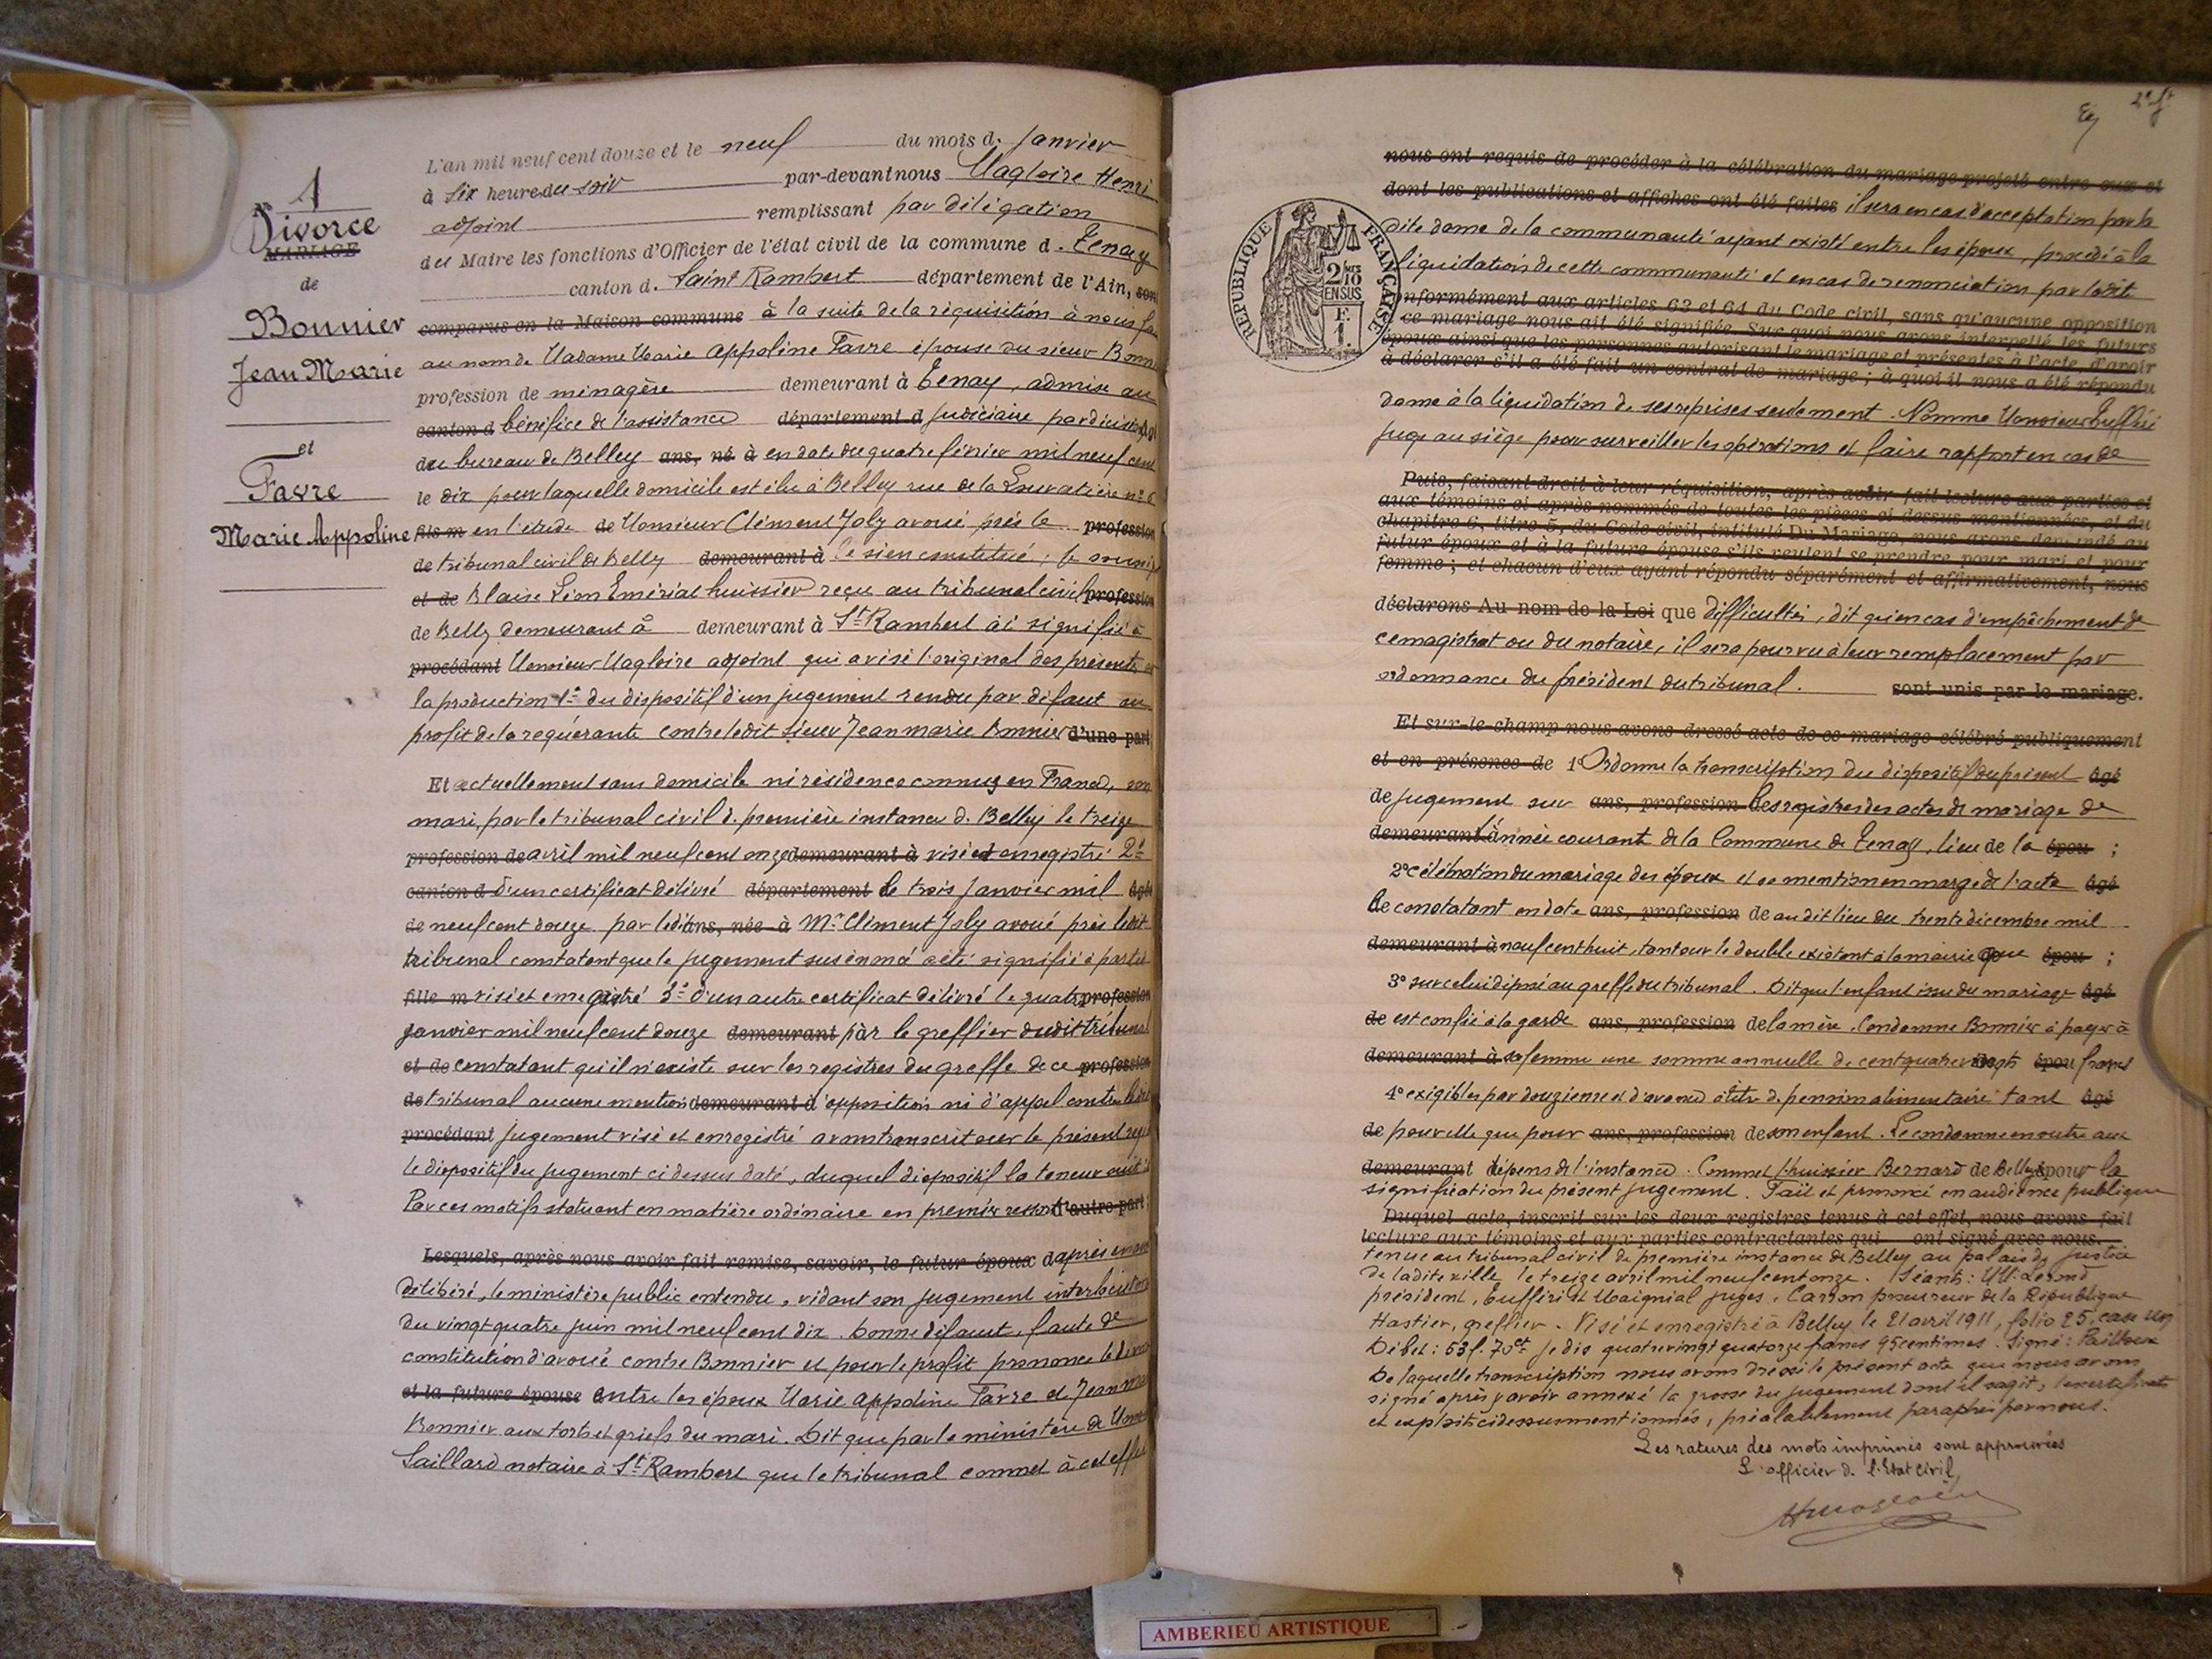 1
Divorce
MARIAGE
de
Bonnier
Jean Marie
et
Favre
Marie Appoline
L'an mil neuf cent douze et le neuf du mois d. Janvier
à six heure du soir par-devant nous Magloire Henri
adjoint remplissant par délégation
du Maire les fonctions d'Officier de l'état civil de la commune d. Tenay
canton d. Saint Rambert département de l'Ain, son
comparus en la Maison commune à la suite de la réquisition à nous
au nom de Madame Marie Appoline Favre épouse du sieur Bonn
profession de ménagère demeurant à Tenay, admise au
canton d bénéfice de l'assistance département d judiciaire par décision
du bureau de Belley ans, né à en date du quatre février mil neuf cent
le dix pour laquelle domicile est élu à Belley rue de la
fils m en l'étude de Monsieur Clément Joly avoué près le profession
de tribunal civil de Belley demeurant à le sien constitué; je
et de Blaise Léon Emérial huissier reçu au tribunal civil profession
de Belley demeurant à demeurant à St Rambert ai signifié à
procédant Monsieur Magloire adjoint qui a visé l'original des présentes
la production 1º du dispositif d'un jugement rendu par défaut au
profit de la requérante contre ledit sieur Jean marie Bonnier d'une part
Et actuellement sans domicile ni résidence connus en France, son
mari, par le tribunal civil de première instance de Belley le treize
profession de avril mil neuf cent onze demeurant à visé et enregistré 2º
canton d d'un certificat délivré département le trois janvier mil âgée
de neuf cent douze par ledit ans, née à Mr Clément Joly avoué près ledit
tribunal constatant que le jugement susénoncé a été signifié à partie
fille m visé et enregistré 3º d'un autre certificat délivré le quatre profession
janvier mil neuf cent douze demeurant par le greffier dudit tribunal
et de constatant qu'il n'existe sur les registres du greffe de ce profession
de tribunal aucune mention demeurant à d'opposition ni d'appel contre
procédant jugement visé et enregistré avons transcrit sur le présent
le dispositif du jugement ci dessus daté, duquel dispositif la teneur suit
Par ces motifs statuant en matière ordinaire en premier ressort d'autre part
Lesquels, après nous avoir fait remise, savoir, le futur époux d'après en avoir
délibéré, le ministère public entendu, vidant son jugement
du vingt quatre juin mil neuf cent dix. Donne défaut, faute de
constitution d'avoué contre Bonnier et pour le profit prononce le
et la future épouse entre les époux Marie Appoline Favre et Jean
Bonnier aux torts et griefs du mari. Dit que par le ministère de
Saillard notaire à St Rambert que le tribunal commet à cet effet
nous ont requis de procéder à la célébration du mariage projeté entre eux et
dont les publications et affiches ont été faites il sera en cas d'acceptation par la
dite dame de la communauté ayant existé entre les époux, procédé à la
liquidation de cette communauté et en cas de renonciation par ladite
REPUBLIQUE FRANÇAISE
2/10
EN SUS
F.
1.
onformément aux articles 63 et 64 du Code civil, sans qu'aucune opposition
ce mariage nous ait été signifiée. Sur quoi nous avons interpellé les futurs
époux ainsi que les personnes autorisant le mariage et présentes à l'acte, d'avoir
à déclarer s'il a été fait un contrat de mariage; à quoi il nous a été répondu
dame à la liquidation de ses reprises seulement. Nomme Monsieur
juge au siège pour surveiller les opérations et faire rapport en cas de
Puis, faisant droit à leur réquisition, après avoir fait lecture aux parties et
aux témoins ci après nommés de toutes les pièces ci dessus mentionnées, et du
chapitre 6, titre 5, du Code civil, intitulé Du Mariage, nous avons demandé au
futur époux et à la future épouse s'ils veulent se prendre pour mari et pour
femme; et chacun d'eux ayant répondu séparément et affirmativement, nous
déclarons Au nom de la Loi que difficultés, dit qu'en cas d'empêchement de
ce magistrat ou du notaire, il sera pourvu à leur remplacement par
ordonnance du président du tribunal. sont unis par le mariage.
Et sur-le-champ nous avons dressé acte de ce mariage célébré publiquement
et en présence de 1º Ordonne la transcription du dispositif du présent âgé
de jugement sur ans, profession les registres des actes de mariage de
demeurant l'année courant de la Commune de Tenay, lieu de la épou ;
2º célébration du mariage des époux et sa mention en marge de l'acte âgé
de constatant en date ans, profession de audit lieu du trente décembre mil
demeurant à neuf cent huit, tant sur le double existant à la mairie que épou ;
3º sur celui déposé au greffe du tribunal. Dit que l'enfant issu du mariage âgé
de est confié à la garde ans, profession de la mère. Condamne Bonnier à payer à
demeurant à sa femme une somme annuelle de cent quatre vingts épou francs
4º exigibles par douzième et d'avance à titre de pension alimentaire tant âgé
de pour elle que pour ans, profession de son enfant. Le condamne en outre aux
demeurant dépens de l'instance. Commet l'huissier Bernard de Belley pour la
signification du présent jugement. Fait et prononcé en audience publique
Duquel acte, inscrit sur les deux registres tenus à cet effet, nous avons fait
lecture aux témoins et aux parties contractantes qui ont signé avec nous.
tenue au tribunal civil de première instance de Belley au palais de justice
de ladite ville le treize avril mil neuf cent onze. Séants: MM.
président, et juges, procureur de la République
Hastier, greffier. Visé et enregistré à Belley le 21 avril 1911, folio 25, case
Débet: 53 f. 70 ct Je dis quatre vingt quatorze francs 95 centimes. Signé:
De laquelle transcription nous avons dressé le présent acte que nous avons
signé après y avoir annexé la grosse du jugement dont il s'agit, les certificats
et exploit ci dessus mentionnés, préalablement paraphés par nous.
Les ratures des mots imprimés sont approuvées
L'officier de l'Etat civil,
AMBERIEU ARTISTIQUE